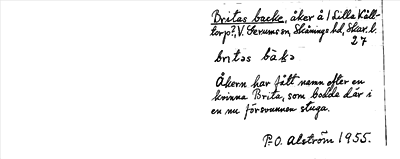 Britas backe, åker å 1 Lilla Käll-
torp?, V. Gerums sn, Skånings hd, Skar. l.
27
britəs bàkə
Åkern har fått namn efter en
kvinna Brita, som bodde där i
en nu försvunnen stuga.
P. O. Alström 1955.